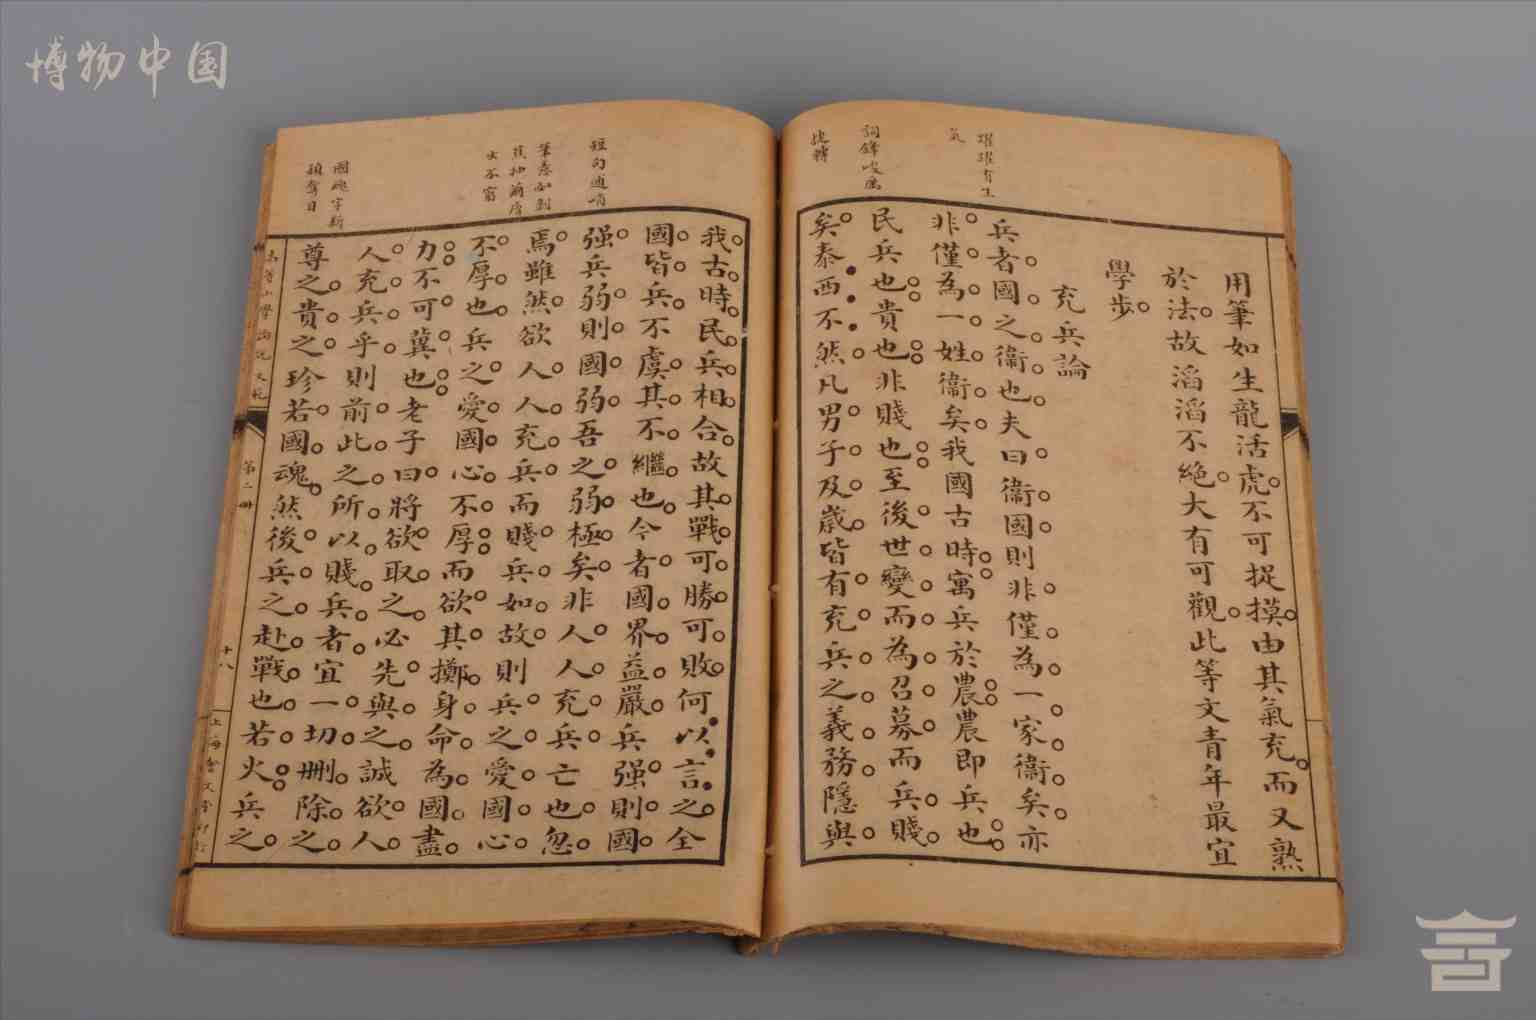 博物中国
躍躍有生
氣
詞鋒峻厲
挽轉
用筆如生龍活虎不可捉摸由其氣充而又熟
於法故滔滔不絕大有可觀此等文青年最宜
學步
充兵論
兵者國之衞也夫曰衞國則非僅為一家衞矣亦
非僅為一姓衞矣我國古時寓兵於農農即兵也
民兵也貴也非賤也至後世變而為召募而兵賤
矣泰西不然凡男子及歲皆有充兵之義務隱與
短句遒峭
筆意如剝
蕉抽繭層
出不窮
國魂字新
穎奪目
我古時民兵相合故其戰可勝可敗何以言之全
國皆兵不虞其不繼也今者國界益嚴兵强則國
强兵弱則國弱吾之弱極矣非人人充兵亡也忽
焉雖然欲人人充兵而賤兵如故則兵之愛國心
不厚也兵之愛國心不厚而欲其擲身命為國盡
力不可冀也老子曰將欲取之必先與之誠欲人
人充兵乎則前此之所以賤兵者宜一切刪除之
尊之貴之珍若國魂然後兵之赴戰也若火兵之
小學論說文範
第二冊
十八
上海會文堂印行